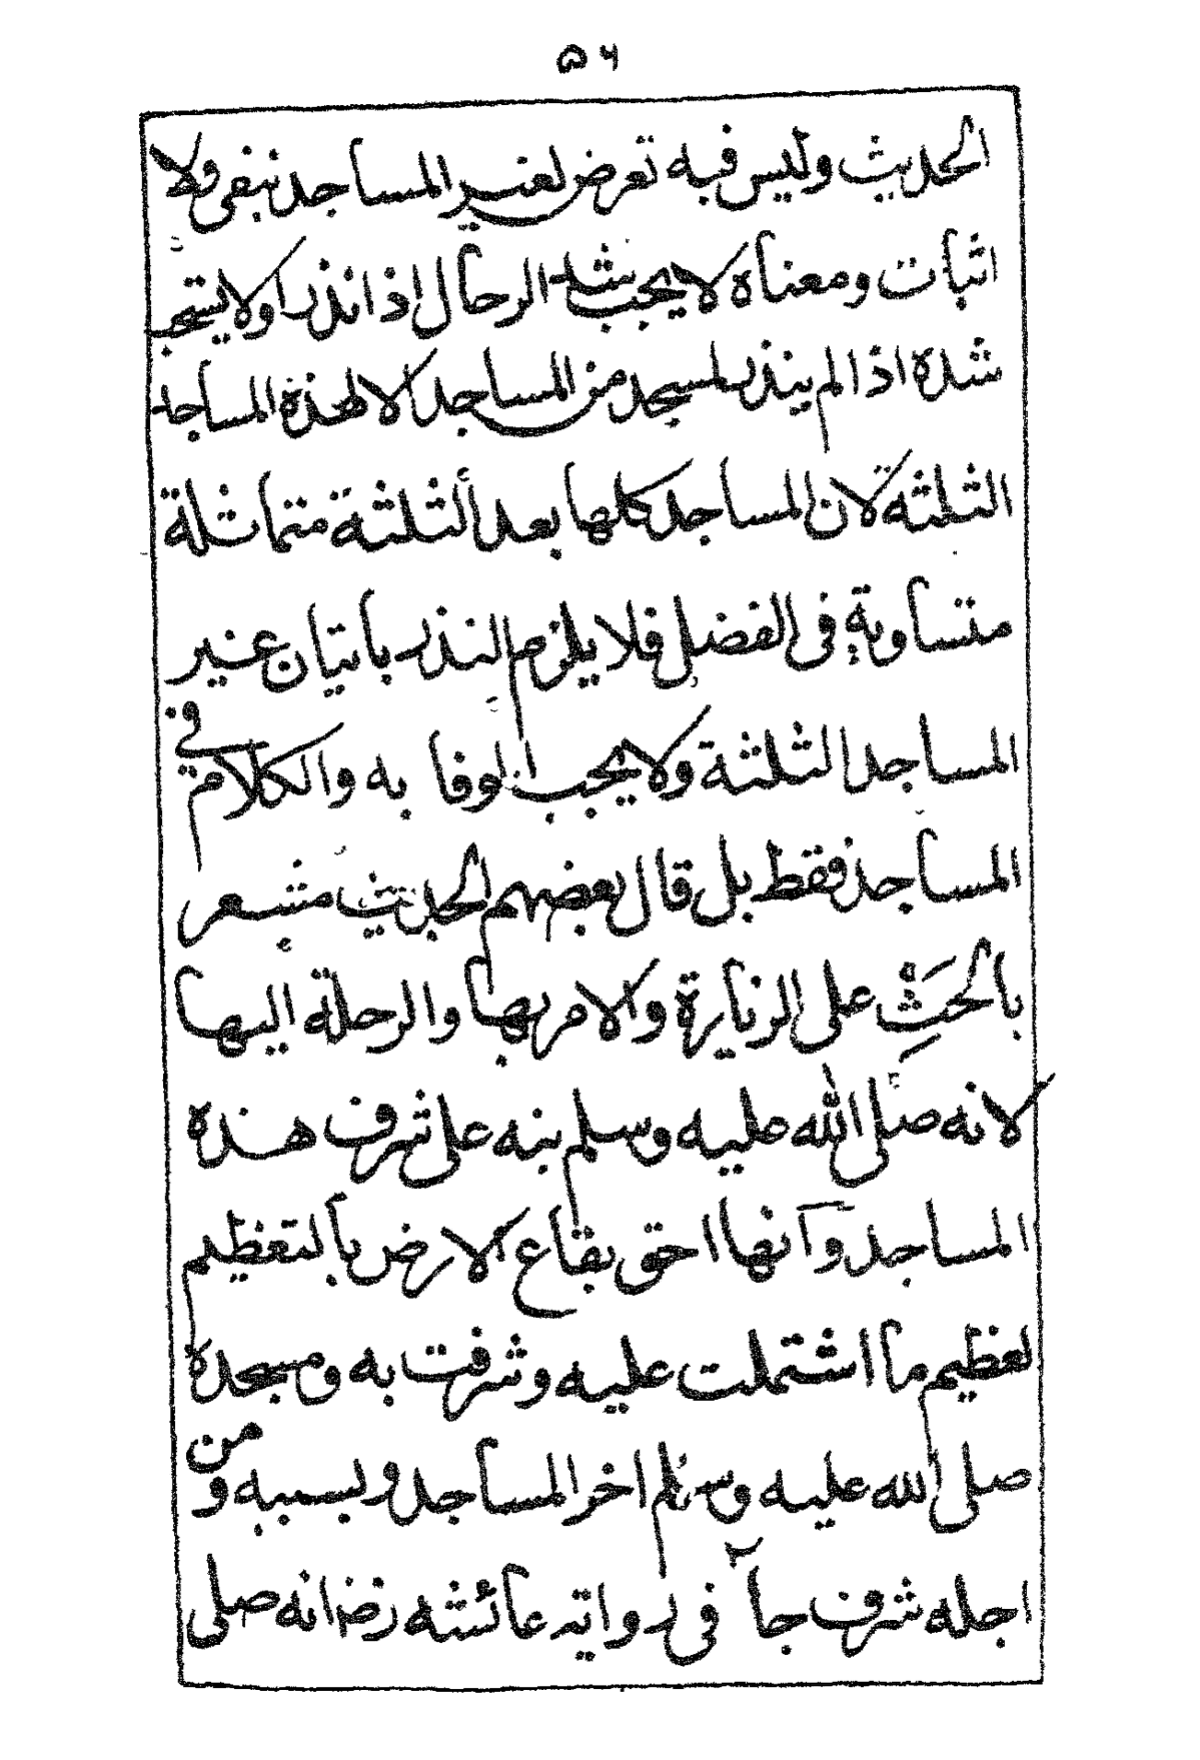 ٥٦
الحديث وليس فيه تعرض لغير المساجد بنفى ولا
اثبات ومعناه لا يجب شد الرحال اذا نذر اولا يستحب
شده اذا لم ينذر لمسجد من المساجد الا لهذة المساجد
الثلثه لان المساجد كلها بعد الثلثة متماثلة
متساوية فى الفضل فلا يلزم النذر باتيان غير
المساجد الثلثة ولا يجب الوفا به والكلام في
المساجد فقط بل قال بعضهم الحديث مشعر
بالحَثِّ على الزيارة والامر بها والرحلة اليها
لانه صلى الله عليه وسلم نبه على شرف هذه
المساجد وانها احق بقاع الارض بالتعظيم
لعظيم ما اشتملت عليه وشرفت به ومسجده
صلى الله عليه وسلم اخر المساجد وبسببه و من
اجله شرف جآ فى رواية عائشه رض انه صلى